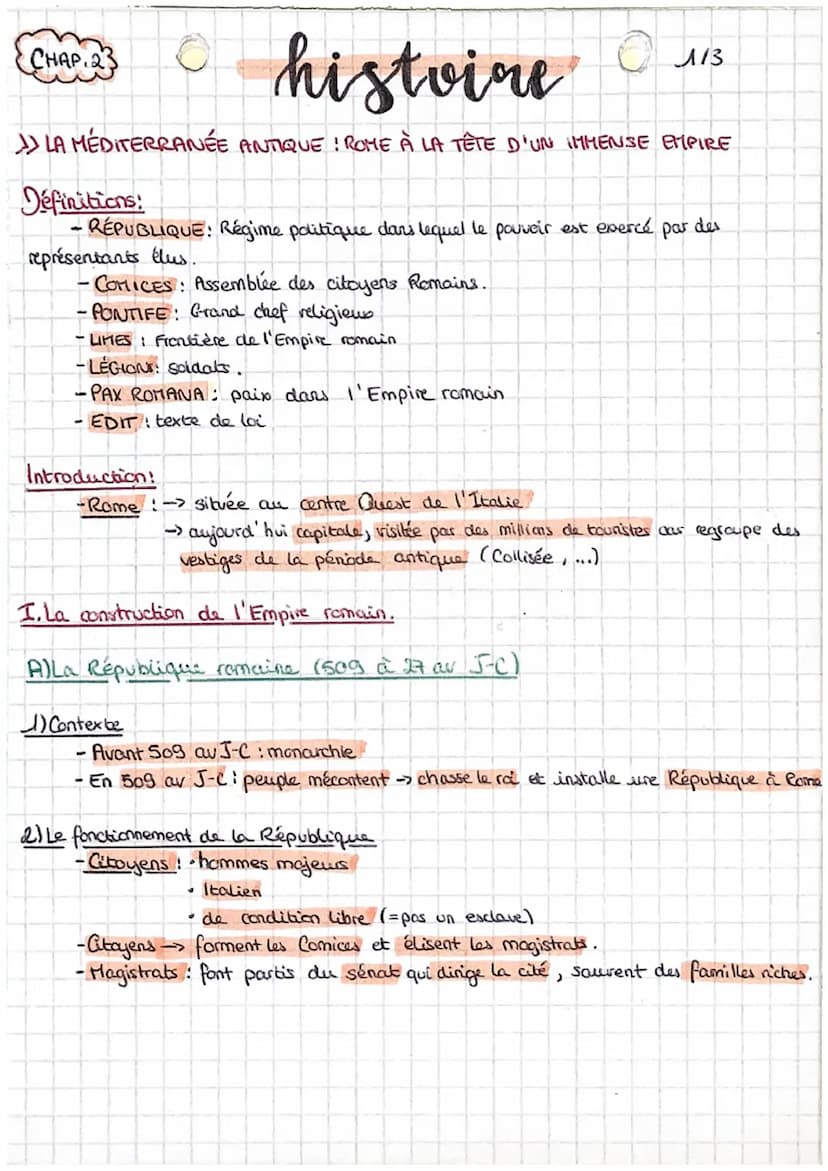 CHAP.2
histoire
1/3
>> LA MÉDITERRANÉE ANTIQUE : ROME À LA TÊTE D'UN IMMENSE EMPIRE
Définitions:
- RÉPUBLIQUE: Régime politique dans lequel le pouvoir est exercé par des
représentants élus.
- COMICES : Assemblée des citoyens Romains.
- PONTIFE : Grand chef religieux
- LIMES : Frontière de l'Empire romain
- LÉGIONS: soldats.
- PAX ROMANA : paix dans l'Empire romain
- EDIT : texte de loi
Introduction:
-Rome : -> située au centre Ouest de l'Italie
-> aujourd'hui capitale, visitée par des millions de touristes car regroupe des
vestiges de la période antique (Collisée, ...)
I. La construction de l'Empire romain.
A) La République romaine (509 à 27 av J-C)
1) Contexte
- Avant 509 av J-C : monarchie
- En 509 av J-C : peuple mécontent -> chasse le roi et installe une République à Rome
2) Le fonctionnement de la République
- Citoyens : • hommes majeurs
• Italien
• de condition libre (=pas un esclave)
- Citoyens -> forment les Comices et élisent les magistrats.
- Magistrats : font partis du sénat qui dirige la cité, souvent des familles riches.